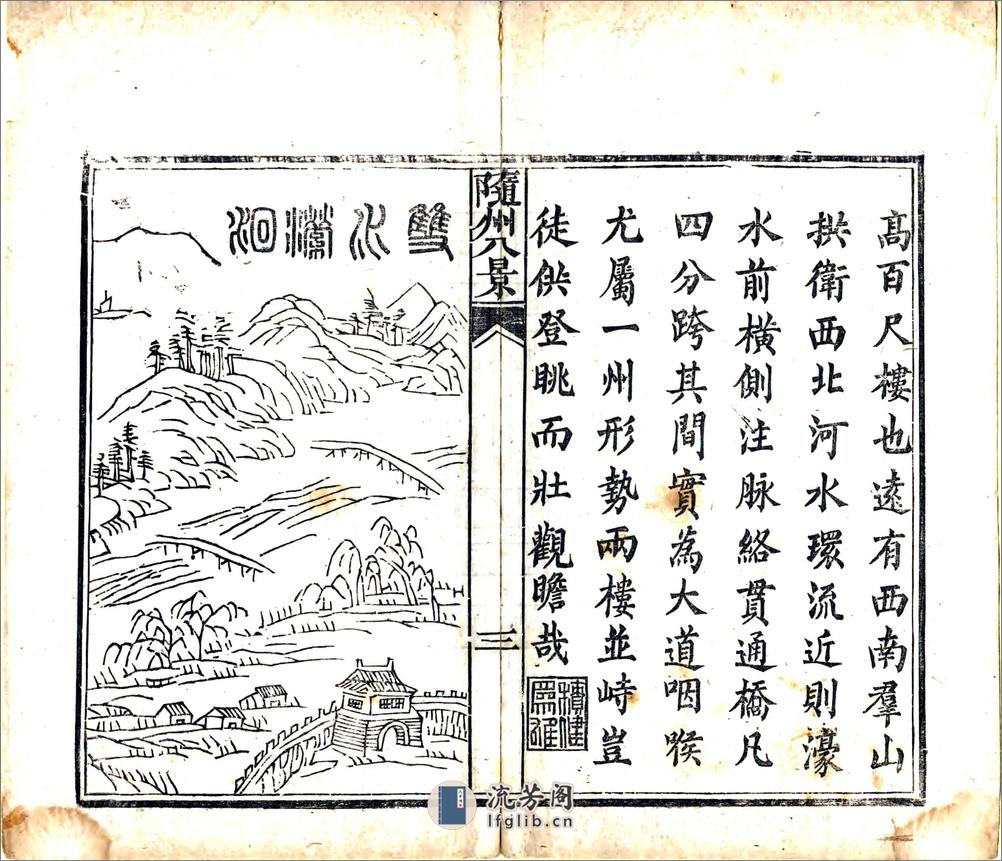 高百尺樓也遠有西南羣山
拱衛西北河水環流近則濠
水前橫側注脉絡貫通橋凡
四分跨其間實為大道咽喉
尤屬一州形勢兩樓並峙豈
徒供登眺而壯觀瞻哉
隨州八景
三
雙水瀠洄
流芳阁
lfglib.cn